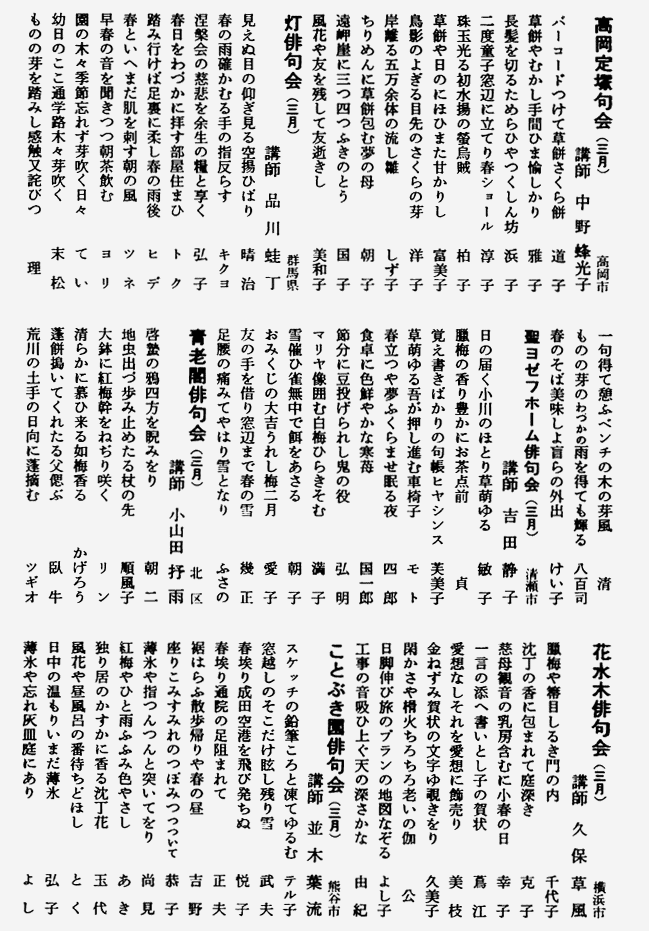 高岡定塚句会（三月）
講師 中野 蜂光子 高岡市
バーコードつけて草餅さくら餅 道子
草餅やむかし手間ひま愉しかり 雅子
長髪を切るためらひやつくしん坊 浜子
二度童子窓辺に立てり春ショール 淳子
珠玉光る初水揚の螢烏賊 柏子
草餅や日のにほひまた甘かりし 富美子
鳥影のよぎる目先のさくらの芽 洋子
岸離る五万余体の流し雛 しず子
ちりめんに草餅包む夢の母 朝子
遠岬崖に三つ四つふきのとう 国子
風花や友を残して友逝きし 美和子
灯俳句会（三月） 群馬県
講師 品川 蛙丁
見えぬ目の仰ぎ見る空揚ひばり 晴治
春の雨確かむる手の指反らす キクヨ
涅槃会の慈悲を余生の糧と享く 弘子
春日をわづかに拝す部屋住まひ トク
踏み行けば足裏に柔し春の雨後 ヒデ
春といへまだ肌を刺す朝の風 ツネ
早春の音を聞きつつ朝茶飲む ヨリ
園の木々季節忘れず芽吹く日々 てい
幼日のここ通学路木々芽吹く 末松
ものの芽を踏みし感触又詫びつ 理
一句得て憩ふベンチの木の芽風 清
ものの芽のわづかの雨を得ても輝る 八百司
春のそば美味しよ盲らの外出 けい子
聖ヨゼフホーム俳句会（三月） 清瀬市
講師 吉田 静子
日の届く小川のほとり草萌ゆる 敏子
臘梅の香り豊かにお茶点前 貞
覚え書きばかりの句帳ヒヤシンス 芙美子
草萌ゆる吾が押し進む車椅子 モト
春立つや夢ふくらませ眠る夜 四郎
食卓に色鮮やかな寒苺 国一郎
節分に豆投げられし鬼の役 弘明
マリヤ像囲む白梅ひらきそむ 満子
雪催ひ雀無中で餌をあさる 朝子
おみくじの大吉うれし梅二月 愛子
友の手を借り窓辺まで春の雪 幾正
足腰の痛みてやはり雪となり ふさの
青老閣俳句会（三月） 北区
講師 小山田 抒雨
啓蟄の鴉四方を睨みをり 朝二
地虫出づ歩み止めたる杖の先 順風子
大鉢に紅梅幹をねぢり咲く リン
清らかに慕ひ来る如梅香る かげろう
蓬餅搗いてくれたる父偲ぶ 臥牛
荒川の土手の日向に蓬摘む ツギオ
花水木俳句会（三月） 横浜市
講師 久保 草風
臘梅や箒目しるき門の内 千代子
沈丁の香に包まれて庭深き 克子
慈母観音の乳房含むに小春の日 幸子
一言の添へ書いとし子の賀状 蔦江
愛想なしそれを愛想に飾売り 美枝
金ねずみ賀状の文字ゆ覗きをり 久美子
閑かさや榾火ちろちろ老いの伽 公
日脚伸び旅のプランの地図なぞる よし子
工事の音吸ひ上ぐ天の深さかな 由紀
ことぶき園俳句会（三月） 熊谷市
講師 並木 葉流
スケッチの鉛筆ころと凍てゆるむ テル子
窓越しのそこだけ眩し残り雪 武夫
春埃り成田空港を飛び発ちぬ 悦子
春埃り通院の足阻まれて 正夫
裾はらふ散歩帰りや春の昼 吉野
座りこみすみれのつぼみつつついて 恭子
薄氷や指つんつんと突いてをり 尚見
紅梅やひと雨ふふみ色やさし あき
独り居のかすかに香る沈丁花 玉代
風花や昼風呂の番待ちどほし とく
日中の温もりいまだ薄氷 弘子
薄氷や忘れ灰皿庭にあり よし